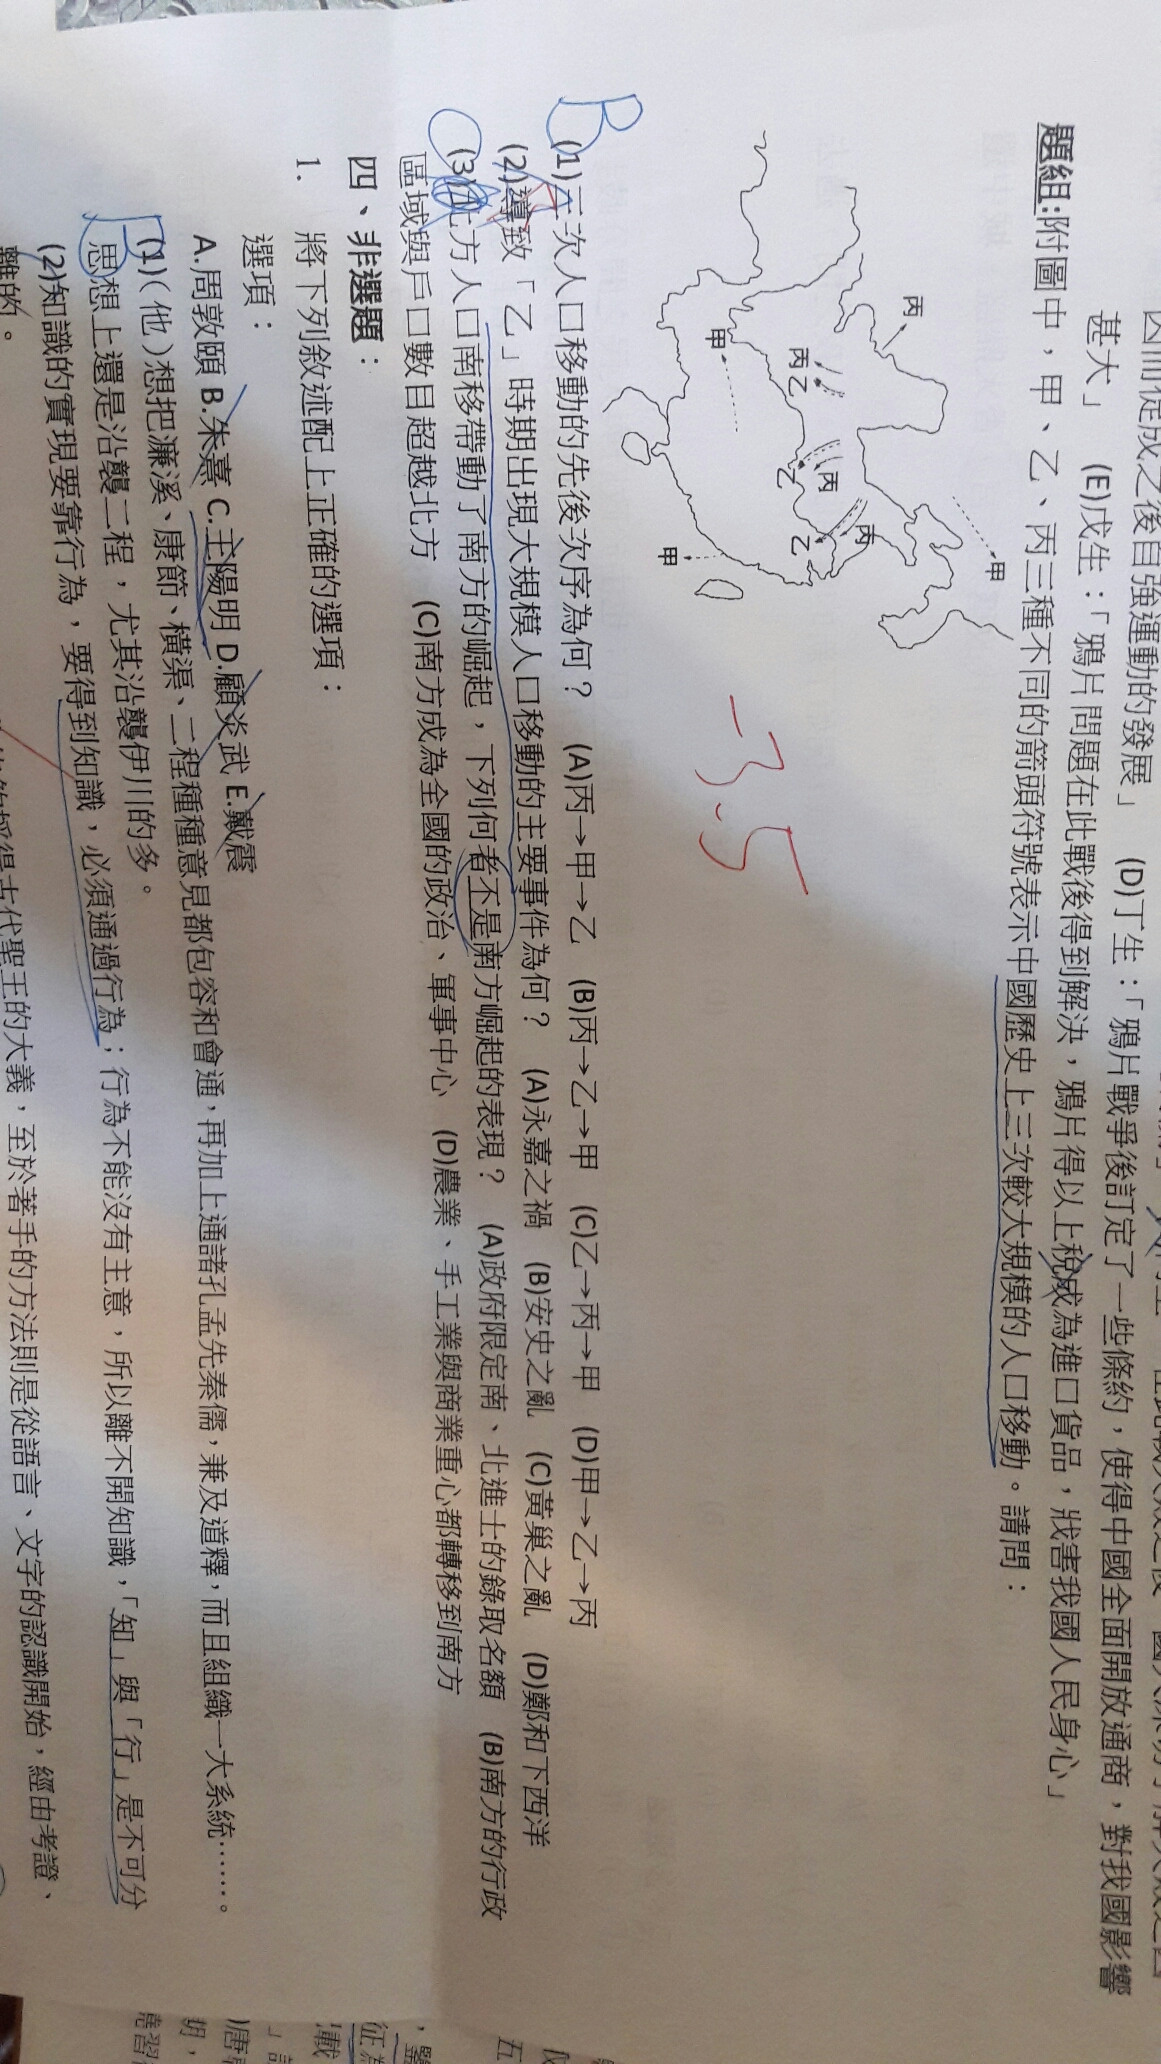 因而促成之後自強運動的發展」 (D)丁生：「鴉片戰爭後訂定了一些條約，使得中國全面開放通商，對我國影響
甚大」 (E)戊生：「鴉片問題在此戰後得到解決，鴉片得以上稅成為進口貨品，戕害我國人民身心」
題組:附圖中，甲、乙、丙三種不同的箭頭符號表示中國歷史上三次較大規模的人口移動。請問：
甲
丙
丙
丙
乙
丙
乙
乙
甲
甲
-3.5
B
(1)三次人口移動的先後次序為何？ (A)丙→甲→乙 (B)丙→乙→甲 (C)乙→丙→甲 (D)甲→乙→丙
A
(2)導致「乙」時期出現大規模人口移動的主要事件為何？ (A)永嘉之禍 (B)安史之亂 (C)黃巢之亂 (D)鄭和下西洋
C
(3)北方人口南移帶動了南方的崛起，下列何者不是南方崛起的表現？ (A)政府限定南、北進士的錄取名額 (B)南方的行政
區域與戶口數目超越北方 (C)南方成為全國的政治、軍事中心 (D)農業、手工業與商業重心都轉移到南方
四、非選題：
1. 將下列敘述配上正確的選項：
選項：
A.周敦頤 B.朱熹 C.王陽明 D.顧炎武 E.戴震
B
(1)(他)想把濂溪、康節、橫渠、二程種種意見都包容和會通，再加上通諸孔孟先秦儒，兼及道釋，而且組織一大系統……。
思想上還是沿襲二程，尤其沿襲伊川的多。
(2)知識的實現要靠行為，要得到知識，必須通過行為；行為不能沒有主意，所以離不開知識，「知」與「行」是不可分
離的。
得古代聖王的大義，至於著手的方法則是從語言、文字的認識開始，經由考證、